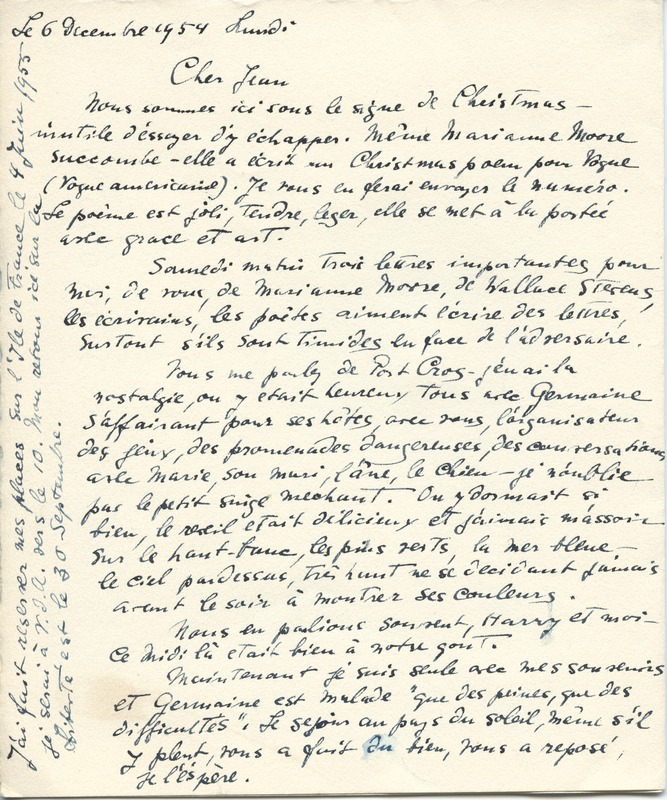 Le 6 Decembre 1954 Lundi
Cher Jean
Nous sommes ici sous le signe de Christmas –
inutile d'essayer d'y échapper. Même Marianne Moore
succombe – elle a écrit un Christmas poem pour Vogue
(Vogue americaine). Je vous en ferai envoyer le numéro.
Le poème est joli, tendre, leger, elle se met à la portée
avec grace et art.
Samedi matin trois lettres importantes pour
moi, de vous, de Marianne Moore, de Wallace Stevens,
les écrivains, les poètes aiment écrire des lettres,
surtout s'ils sont timides en face de l'adversaire.
Vous me parlez de Port Cros – j'en ai la
nostalgie, on y etait heureux tous avec Germaine
s'affairant pour ses hôtes, avec vous, l'organisateur
des jeux, des promenades dangereuses, des conversations
avec Marie, son mari, l'âne, le chien – je n'oublie
pas le petit singe mechant. On y dormait si
bien, le reveil etait délicieux et j'aimais m'assoir
sur le haut-banc, les pins verts, la mer bleue –
le ciel par dessus, très haut ne se decidant jamais
avant le soir à montrer ses couleurs.
Nous en parlions souvent, Harry et moi –
ce midi là etait bien à notre goût.
Maintenant je suis seule avec mes souvenirs
et Germaine est malade "que des peines, que des
difficultés". Le sejour au pays du soleil, même s'il
y pleut, vous a fait du bien, vous a reposé,
je l'éspère.
J'ai fait reserver mes places sur l'Ile de France le 4 Juin 1955
je serai à V.d.A. vers le 10. Mon retour ici sur la
Liberté est le 30 Septembre.